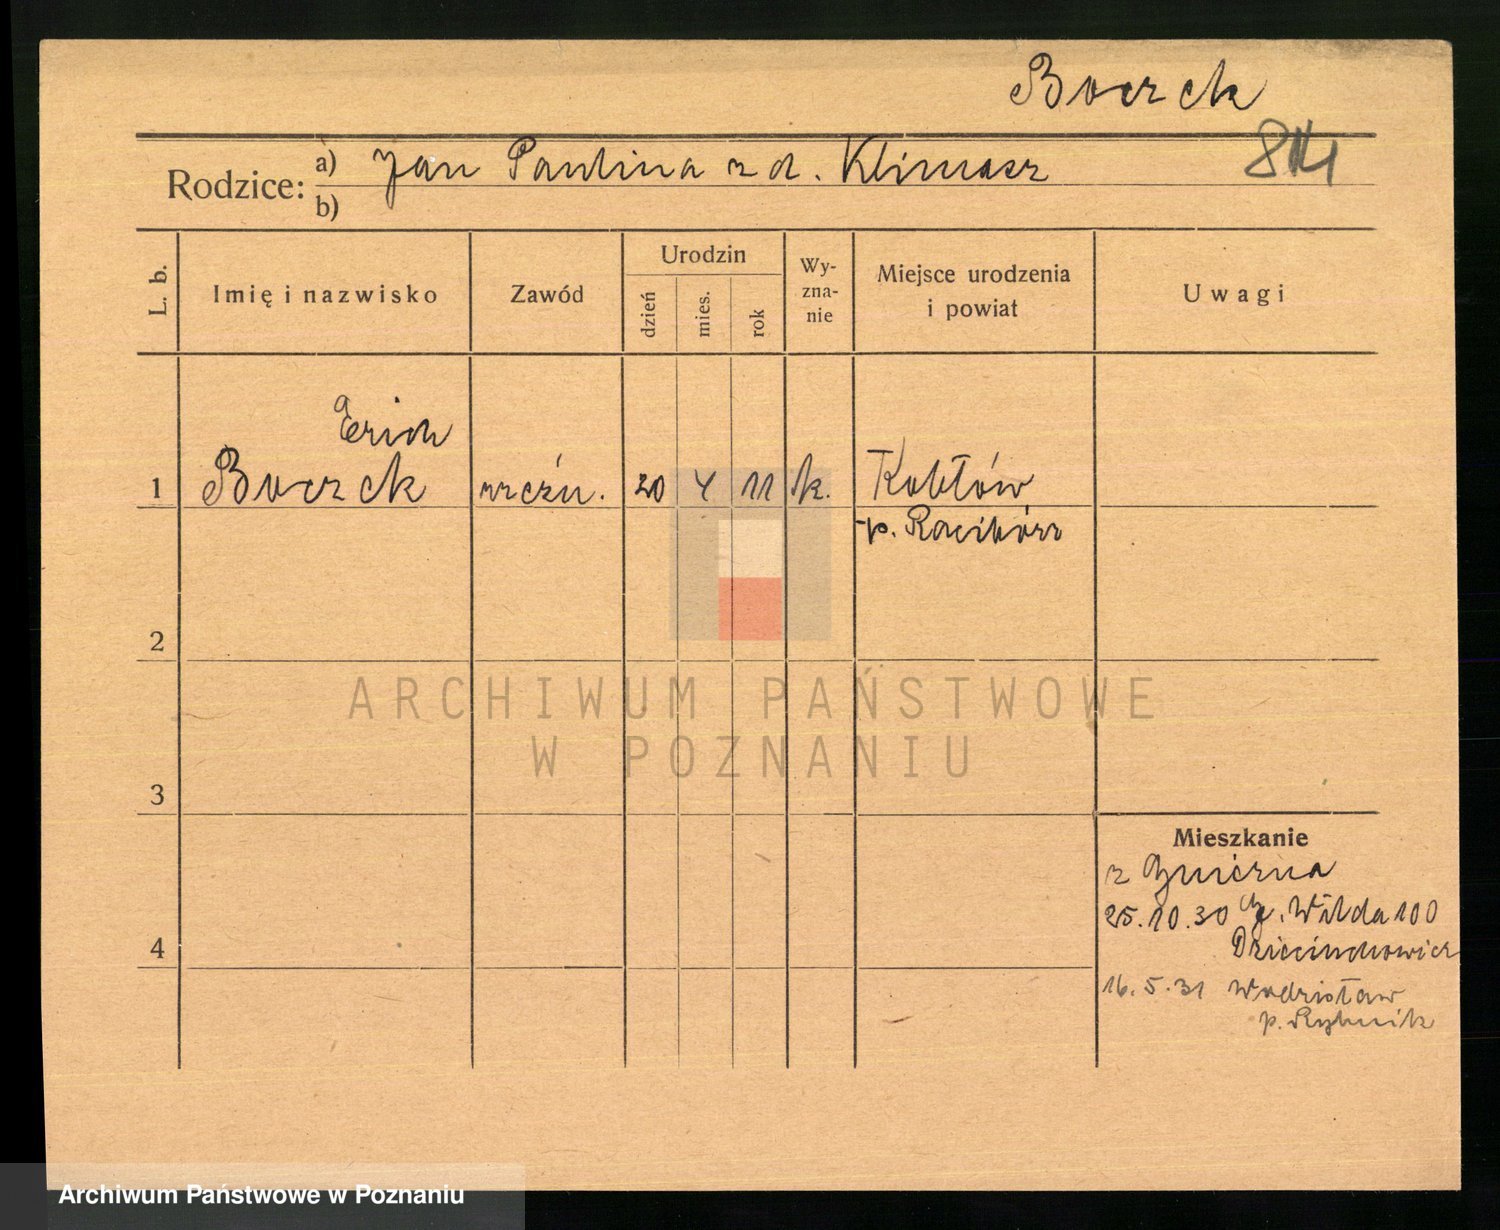 Boczek
Rodzice: a) Jan Paulina z d. Klimasz
b)
L. b. Imię i nazwisko Zawód Urodzin dzień mies. rok Wyznanie Miejsce urodzenia i powiat Uwagi
Erich
1 Boczek rzeźn. 20 4 11 k. Kobłów
p. Racibórz
2
ARCHIWUM PAŃSTWOWE
W POZNANIU
3
Mieszkanie
z Gniezna
25.10.30 G. Wilda 100
4
16.5.31 Wodzisław
p. Rybnik
Archiwum Państwowe w Poznaniu